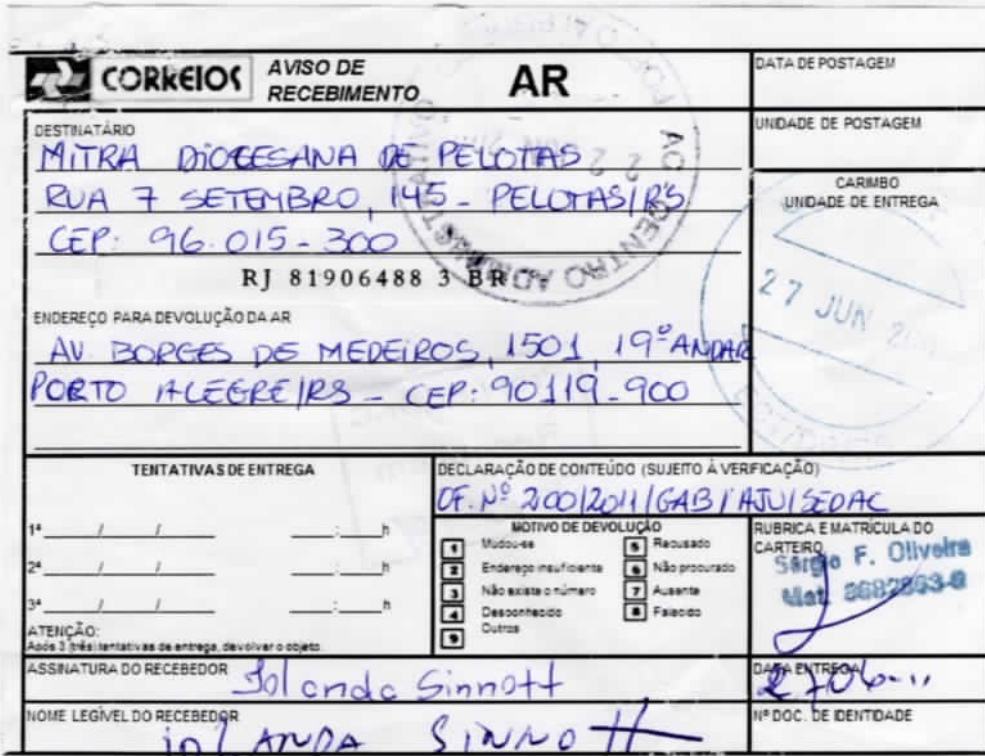 CORREIOS AVISO DE RECEBIMENTO AR
DATA DE POSTAGEM
UNIDADE DE POSTAGEM
DESTINATÁRIO
MITRA DIOCESANA DE PELOTAS
RUA 7 SETEMBRO, 145 - PELOTAS/RS
CEP: 96.015-300
RJ 81906488 3 BR
AC CENTRO ADMINISTRATIVO
CARIMBO
UNIDADE DE ENTREGA
27 JUN
ENDEREÇO PARA DEVOLUÇÃO DA AR
AV. BORGES DE MEDEIROS, 1501, 19º ANDAR
PORTO ALEGRE/RS - CEP: 90119-900
TENTATIVAS DE ENTREGA
1ª ____/____/____ ____:____h
2ª ____/____/____ ____:____h
3ª ____/____/____ ____:____h
ATENÇÃO:
Após 3 (três) tentativas de entrega, devolver o objeto.
DECLARAÇÃO DE CONTEÚDO (SUJEITO À VERIFICAÇÃO)
OF. Nº 200/2011/GAB/AJU/SEDAC
MOTIVO DE DEVOLUÇÃO
1 Mudou-se
2 Endereço insuficiente
3 Não existe o número
4 Desconhecido
9 Outros
5 Recusado
6 Não procurado
7 Ausente
8 Falecido
RUBRICA E MATRÍCULA DO CARTEIRO
Sérgio F. Oliveira
Mat.
ASSINATURA DO RECEBEDOR
Iolanda Sinnott
DATA ENTREGA
27/06
NOME LEGÍVEL DO RECEBEDOR
ioLANDA SINNOTT
Nº DOC. DE IDENTIDADE